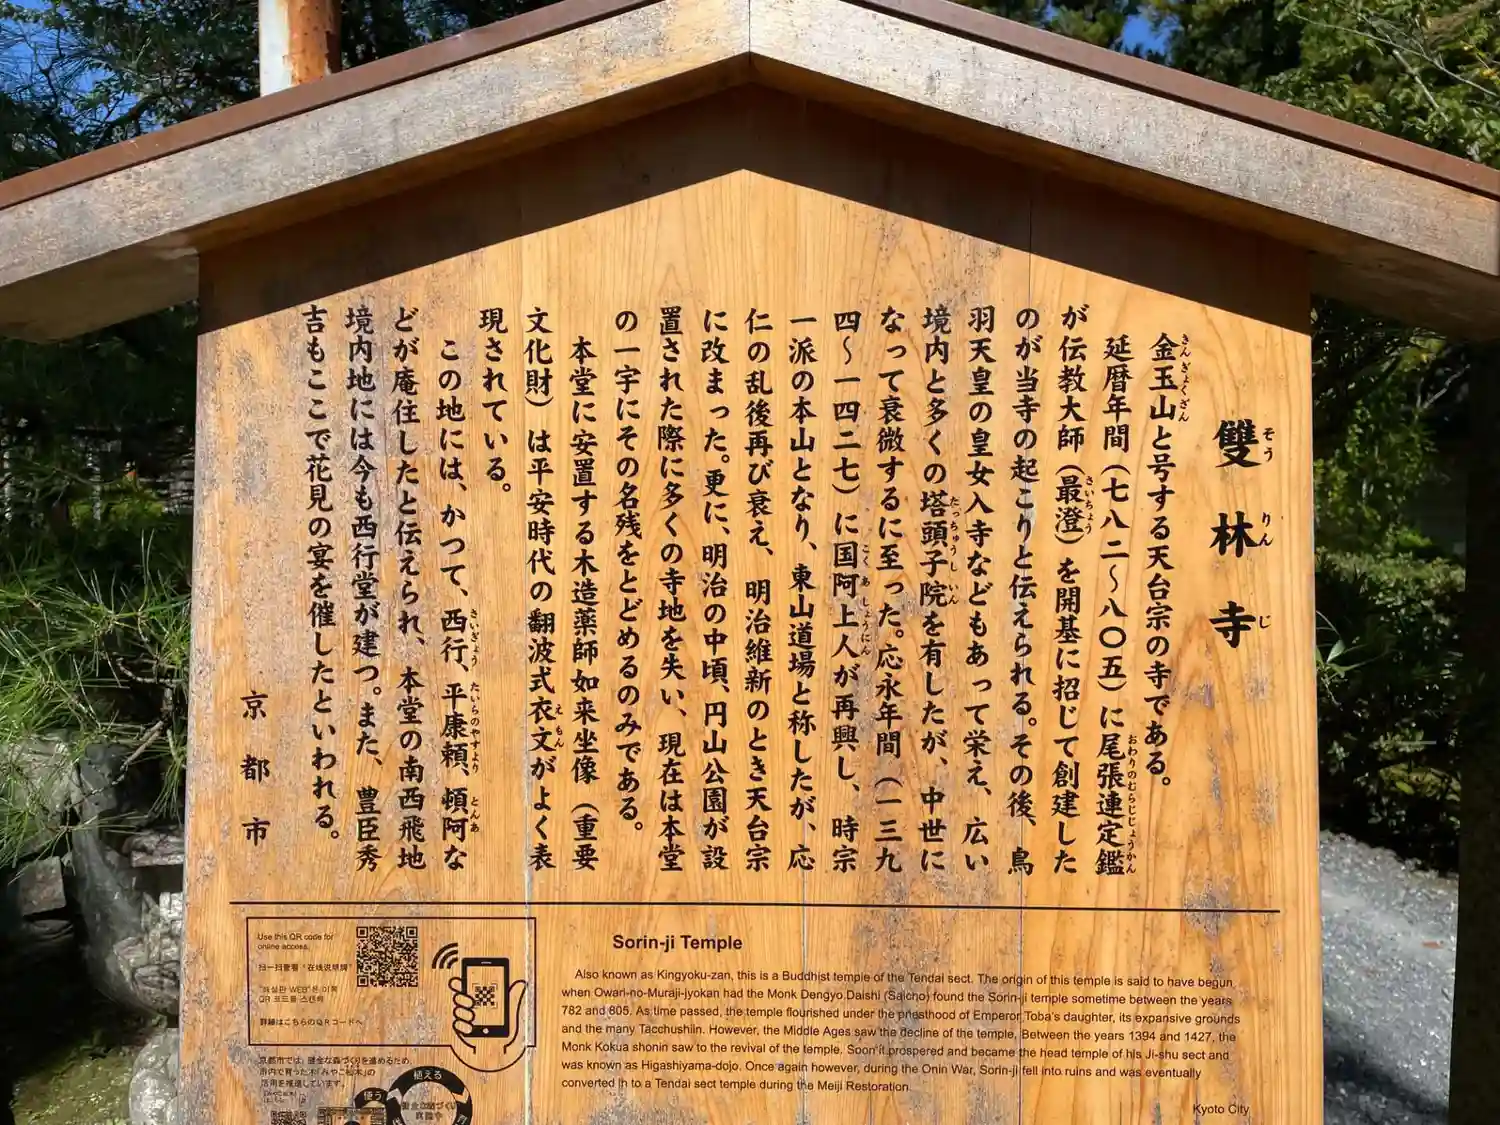 雙林寺
そうりんじ
金玉山と号する天台宗の寺である。
きんぎょくざん
延暦年間（七八二〜八〇五）に尾張連定鑑
おわりのむらじじょうかん
が伝教大師（最澄）を開基に招じて創建した
さいちょう
のが当寺の起こりと伝えられる。その後、鳥
羽天皇の皇女入寺などもあって栄え、広い
境内と多くの塔頭子院を有したが、中世に
たっちゅうしいん
なって衰微するに至った。応永年間（一三九
四〜一四二七）に国阿上人が再興し、時宗
こくあしょうにん
一派の本山となり、東山道場と称したが、応
仁の乱後再び衰え、明治維新のとき天台宗
に改まった。更に、明治の中頃、円山公園が設
置された際に多くの寺地を失い、現在は本堂
の一宇にその名残をとどめるのみである。
本堂に安置する木造薬師如来坐像（重要
文化財）は平安時代の翻波式衣文がよく表
えもん
現されている。
この地には、かつて、西行、平康頼、頓阿な
さいぎょう たいらのやすより とんあ
どが庵住したと伝えられ、本堂の南西飛地
境内地には今も西行堂が建つ。また、豊臣秀
吉もここで花見の宴を催したといわれる。
京都市
Use this QR code for
online access.
扫一扫查看“在线说明牌”
"해설판 WEB"은 이쪽
QR 코드를 스캔해
詳細はこちらのQRコードへ
京都市では、健全な森づくりを進めるため、
市内で育った木「みやこ杣木」の
活用を推進しています。
植える
使う
Sorin-ji Temple
Also known as Kingyoku-zan, this is a Buddhist temple of the Tendai sect. The origin of this temple is said to have begun
when Owari-no-Muraji-jyokan had the Monk Dengyo Daishi (Saicho) found the Sorin-ji temple sometime between the years
782 and 805. As time passed, the temple flourished under the priesthood of Emperor Toba's daughter, its expansive grounds
and the many Tacchushiin. However, the Middle Ages saw the decline of the temple. Between the years 1394 and 1427, the
Monk Kokua shonin saw to the revival of the temple. Soon it prospered and became the head temple of his Ji-shu sect and
was known as Higashiyama-dojo. Once again however, during the Onin War, Sorin-ji fell into ruins and was eventually
converted in to a Tendai sect temple during the Meiji Restoration.
Kyoto City